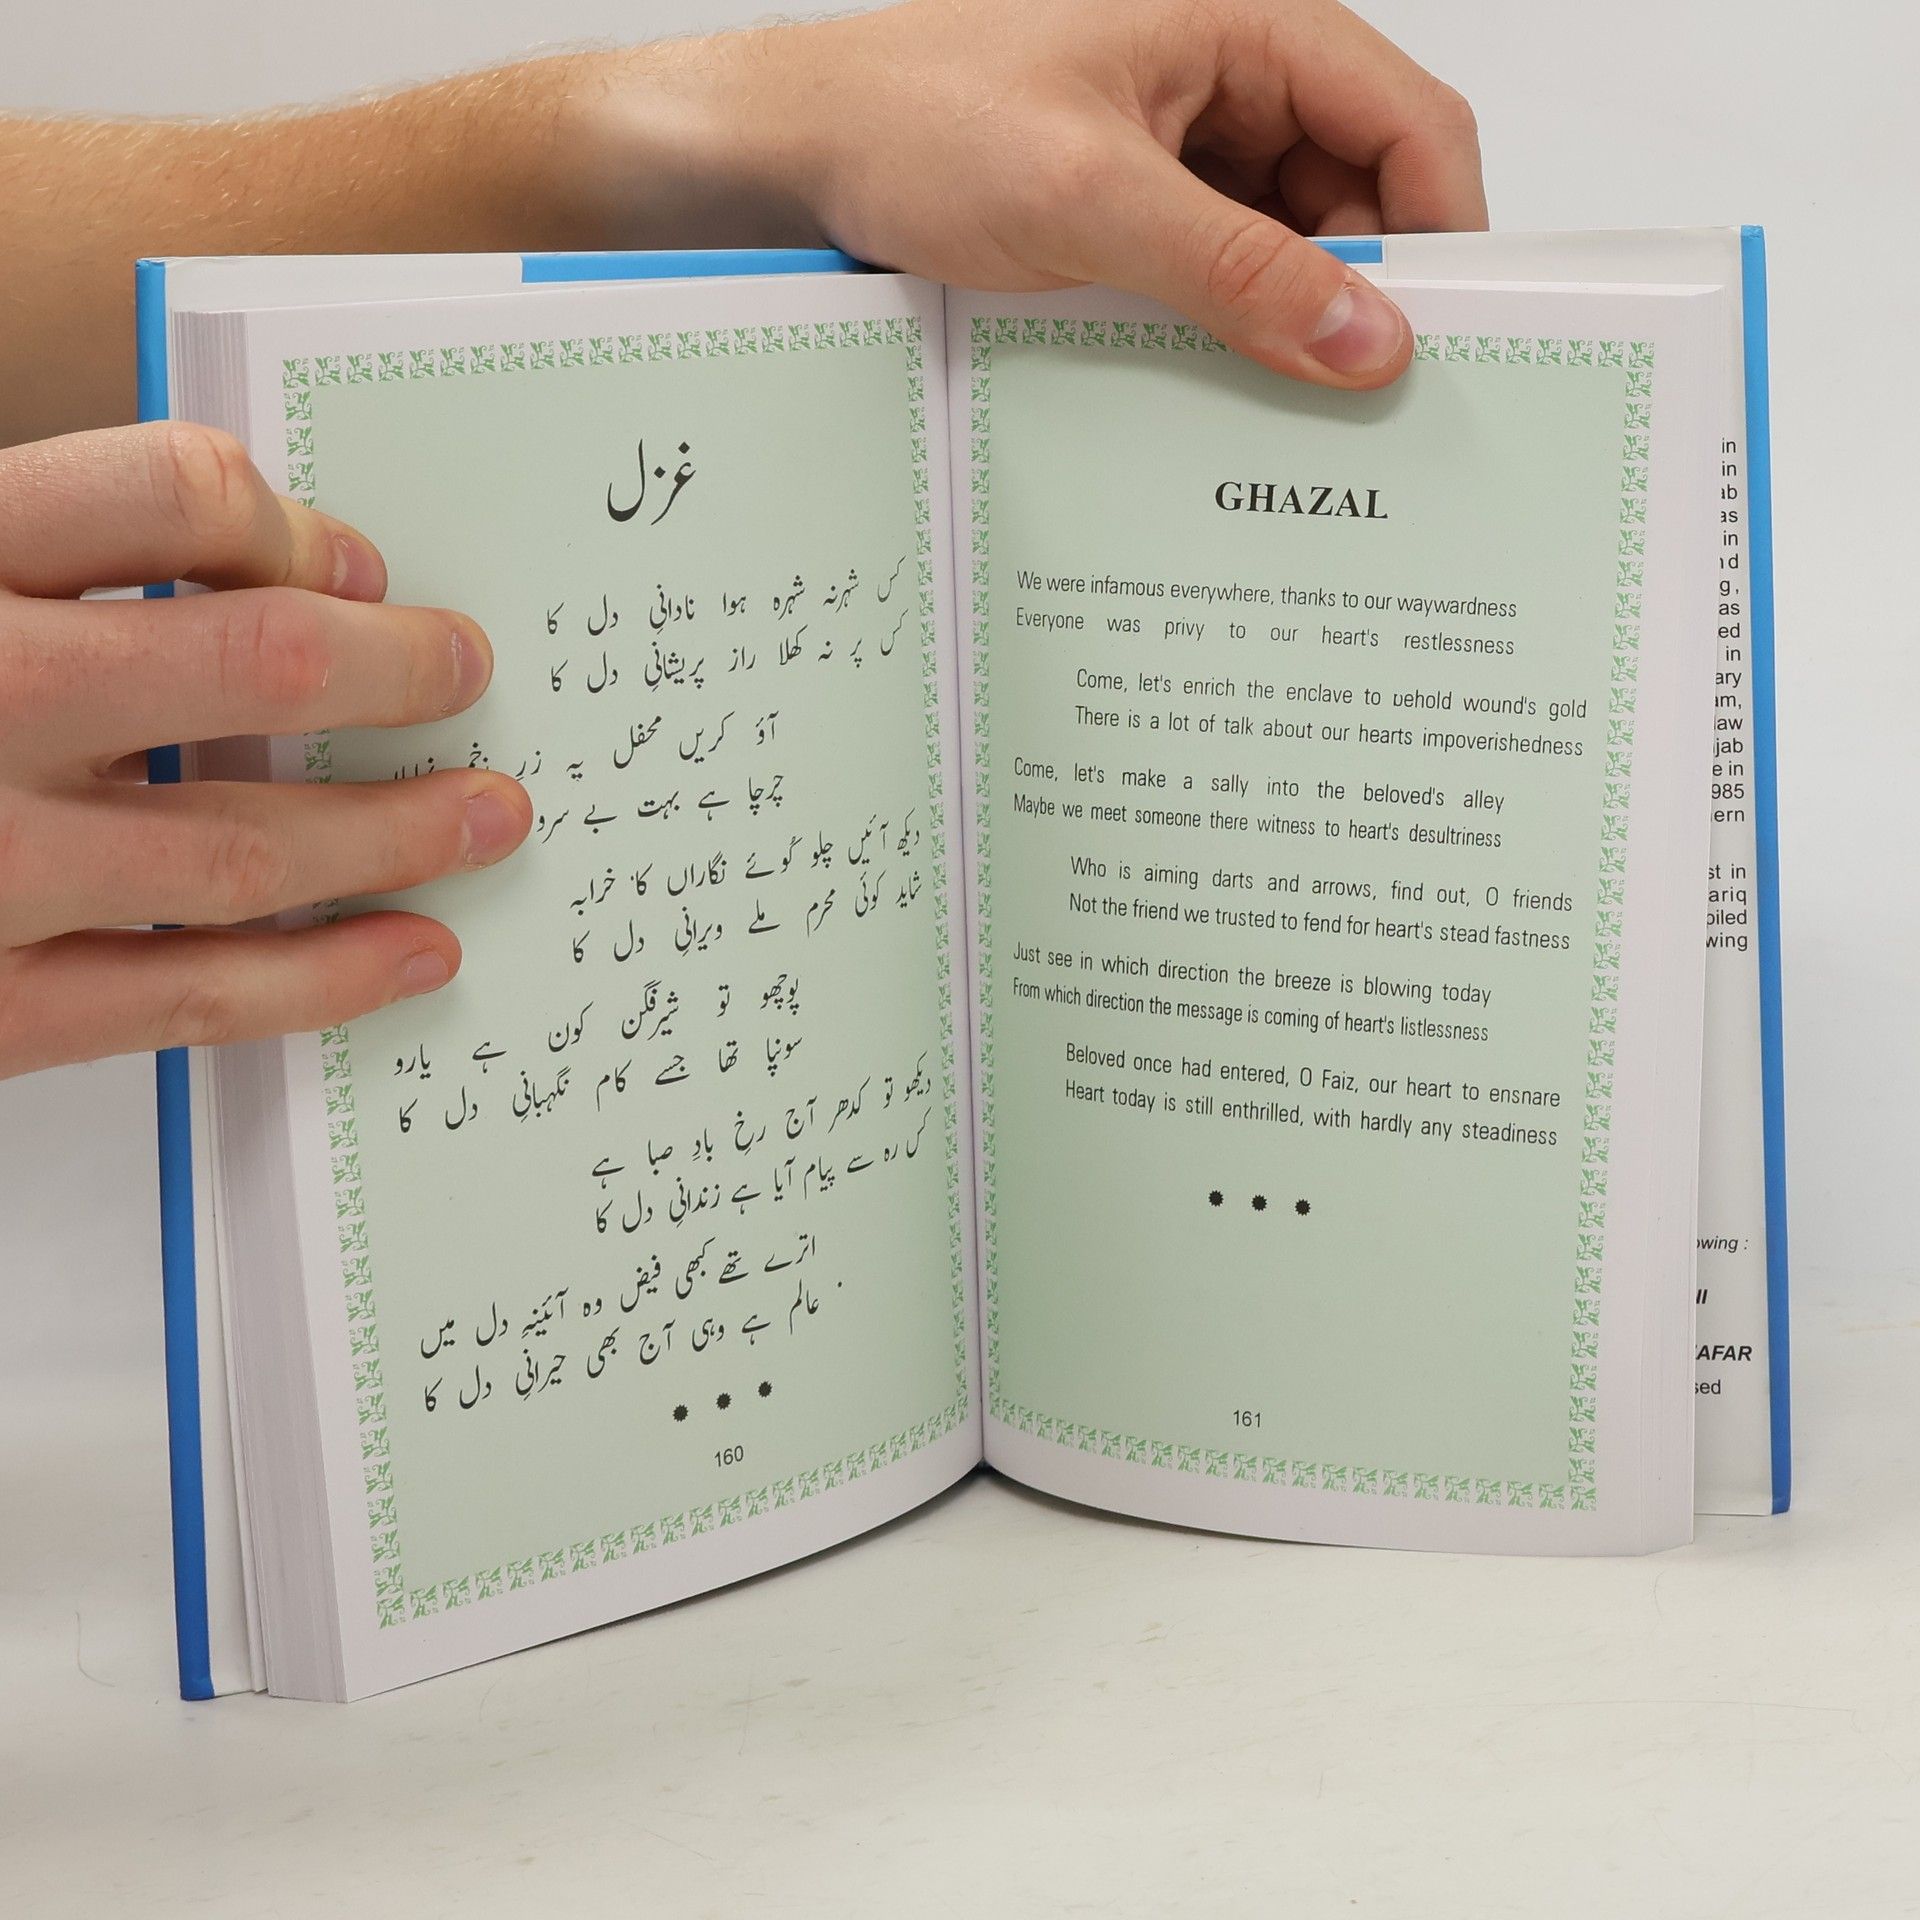 غزل
کس شہر نہ شہرہ ہوا نادانیِ دل کا
کس پر نہ کھلا راز پریشانیِ دل کا
آؤ کریں محفل پہ زرِ زخم
چرچا ہے بہت بے سرو
دیکھ آئیں چلو کُوئے نگاراں کا خرابہ
شاید کوئی محرم ملے ویرانیِ دل کا
پوچھو تو شیرفگن کون ہے یارو
سونپا تھا جسے کام نگہبانیِ دل کا
دیکھو تو کدھر آج رخِ بادِ صبا ہے
کس رہ سے پیام آیا ہے زندانیِ دل کا
اترے تھے کبھی فیض وہ آئینۂِ دل میں
عالم ہے وہی آج بھی حیرانیِ دل کا
160
GHAZAL
We were infamous everywhere, thanks to our waywardness
Everyone was privy to our heart's restlessness
Come, let's enrich the enclave to behold wound's gold
There is a lot of talk about our hearts impoverishedness
Come, let's make a sally into the beloved's alley
Maybe we meet someone there witness to heart's desultriness
Who is aiming darts and arrows, find out, O friends
Not the friend we trusted to fend for heart's stead fastness
Just see in which direction the breeze is blowing today
From which direction the message is coming of heart's listlessness
Beloved once had entered, O Faiz, our heart to ensnare
Heart today is still enthrilled, with hardly any steadiness
161
in
in
ab
as
in
nd
g,
as
ed
in
ary
am,
law
jab
e in
985
ern
st in
ariq
piled
wing
owing :
AFAR
sed